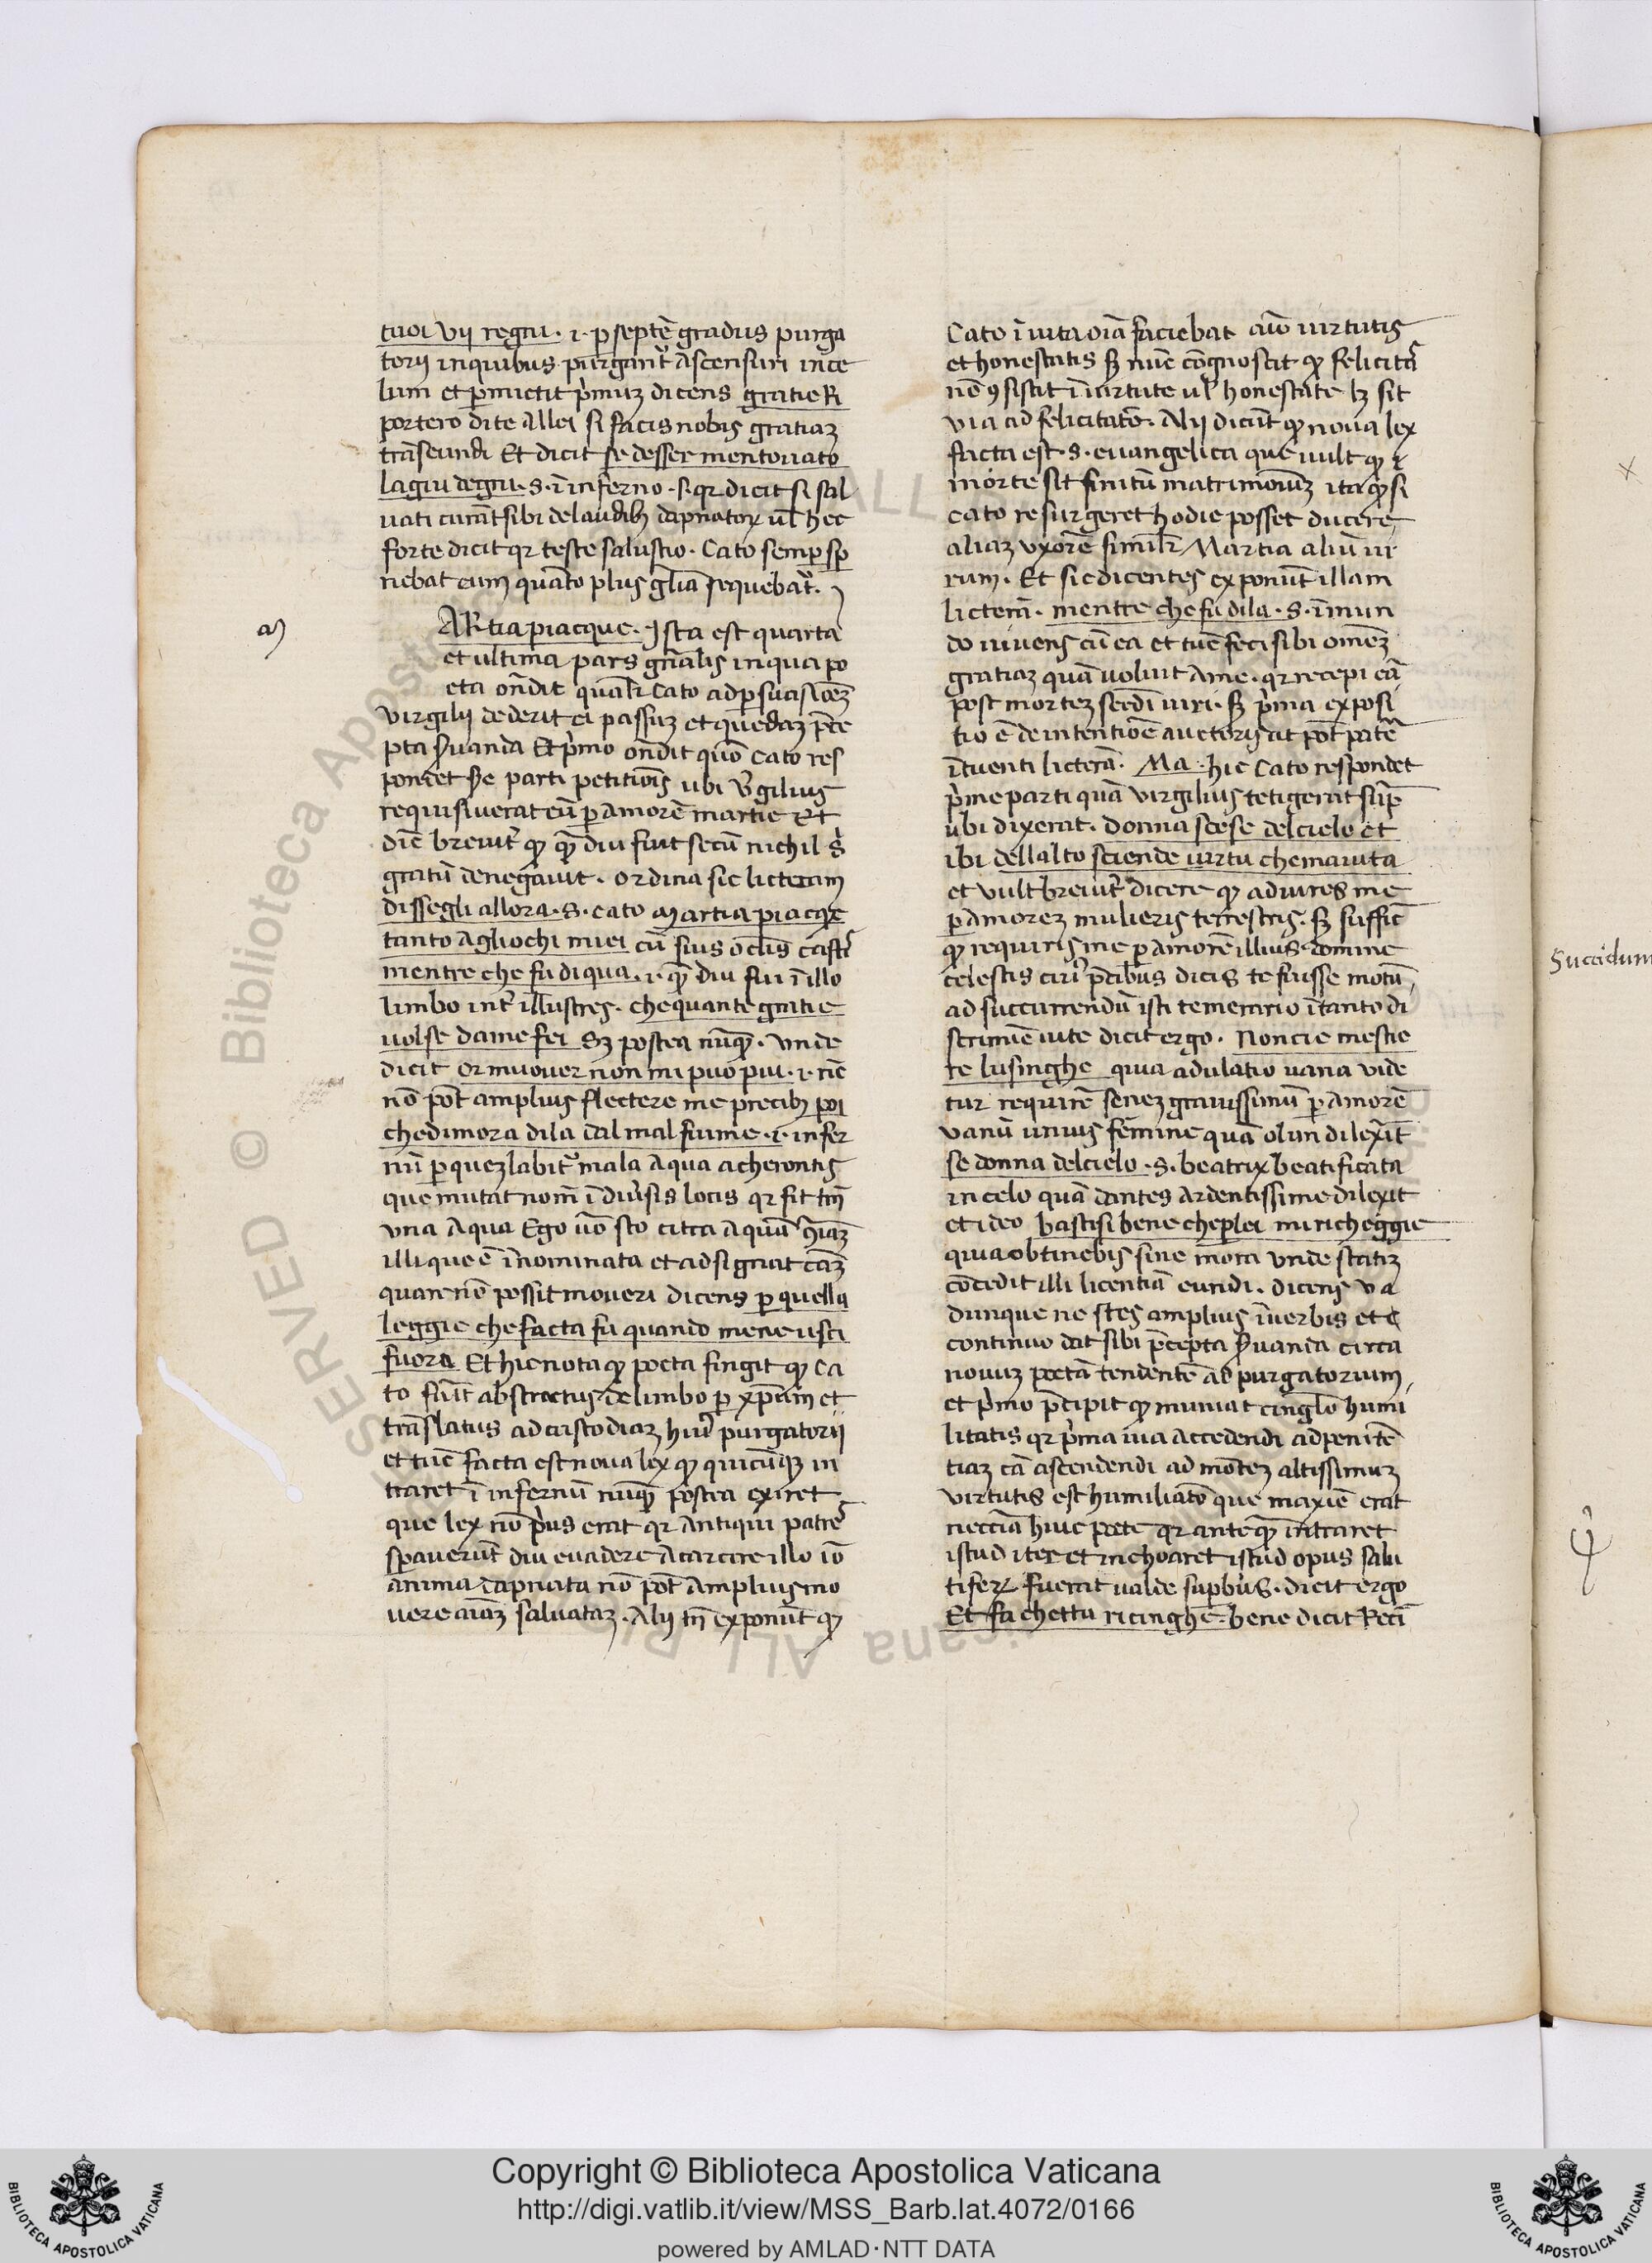 tuoi vij regni · i · p septē gradus purga
torij in quibus purgant᷑ ascensuri in ce
lum et pmictit pͥmuꝫ dicens gratie Ri
portero di te allei si facis nobis gratiaꝫ
trāseundi Et dicit se desser mentouato
lagiu degni · s · ī inferno · s · qr dicit si sal
uati curāt sibi de laudibꝫ dapnatoꝝ ul̄ hec
forte dicit qr teste salustio · Cato semp sp
nebat eum quāto plus gl̄iā sequebat᷑ ·
m
ARtia piacque · Ista est quarta
et ultima pars gn̄alis in qua po
eta on̄dit qualr̄ Cato ad psuasiōeꝫ
virgilij dederit ei passuꝫ et quedaꝫ p̄ce
pta ẜuanda Et pͥmo on̄dit quō Cato res
pondet
parti petitiōis ubi v̓gilius
requisiuerat eū p amorē martie Et
dic̄ breuit᷑ ꝙ qͣ diu fuit secū nichil s᷑
gratū denegauit · ordina sic licteram
dissegli allora · s · cato martia piacqꝫ
tanto agliochi miei cū suis oc̄lis casti
mentre che fu di qua · i · qͣ diu fui ī illo
limbo int᷑ illustres · che quante gratie
uolse da me fei Sꝫ postea nūqͣ · vnde
dicit or muouer non mi puo piu · i · nc̄
nō pōt amplius flectere me precibꝫ poi
che dimora di la dal mal fiume · i · infer
nū p queꝫ labit᷑ mala aqua acherontis
que mutat nom̄ ī diu̓sis locis qr sit tm̄
vna aqua Ego uō sto citra aquā
illi que ē īnominata et adsignat cāꝫ
quare nō possit moueri dicens p quella
leggie che facta fu quando me ne usci
fuora Et hic nota ꝙ poeta fingit ꝙ ca
to fuīt abstractus de limbo p xp̄um et
trāslatus ad custodiaꝫ huiꝰ purgatorij
et tūc facta est noua lex ꝙ quicūqꝫ in
traret ī infernū nūqͣ postea exiret
que lex nō pͥus erat qr antiqui patrē
sp̄auerūt diu euadere a carcere illo iō
anima dapnata nō pōt amplius mo
uere aīaꝫ saluataꝫ · Alij tn̄ exponūt ꝙ
Cato ī uita oīa faciebat
uirtutis
et honestatis sꝫ nūc cōgnoscit ꝙ felicitā
nō ꝯsistit ī uirtute ul̄ honestate lꝫ sit
via ad felicitatē · Alij dicūt ꝙ noua lex
facta est · s · euangelica que uult ꝙ ī
morte sit finitū matrimoniuꝫ ita ꝙ si
cato resurgeret hodie posset ducere
aliaꝫ uxorē similr̄ Martia aliū ui
rum · Et sic dicentes exponūt illam
licterā · mentre che fu di la · s · ī mun
do uiuens cū ea et tūc feci sibi omeꝫ
gratiaꝫ quā uoluit a me · qr recepi eā
post morteꝫ sec̄di uiri · sꝫ pͥma exposi
tio ē de intentiōe auctoris ut pōt patē
ītuenti licterā · Ma · hic Cato respondet
pͥme parti quā virgilius tetigerat sup̄
ubi dixerat · donna scese del cielo et
ibi dell alto sciende uirtu che maiuta
et vult breuit᷑ dicere ꝙ adiures me
p amoreꝫ mulieris terrestris · sꝫ suffic̄
ꝙ requiris me p amorē illius domine
celestis cuiꝰ p̄cibus dicis te fuisse motū
ad succurrendū isti temerario ī tanto di
scrimīe uite dicit ergo · Non cie mestie
re lusinghe quia adulatio uana vide
tur requirē seneꝫ grauissimū p amorē
vanū unius femine quā olim dilexīt
se donna del cielo · s · beatrix beatificata
in celo quā dantes ardentissime dilexit
et ideo bastisi bene che p lei mi richeggie
quia obtinebis sine mora vnde statiꝫ
cōcedit illi licentiā eundi · dicens va
dunque ne stes amplius ī uerbis et
continuo dat sibi p̄cepta ẜuanda circa
nouuꝫ poetā tendentē ad purgatorium
et pͥmo p̄cipit ꝙ muniat cinglō humi
litatis qr pͥma uia accedendi ad penitē
tiaꝫ cā ascendendi ad mōteꝫ altissimuꝫ
virtutis est humiliatō que maxīe erat
neccīa huic poete qr anteqͣ intraret
istud iter et inchoaret istud opus salu
tifeꝝ fuerat ualde supbus · dicit ergo
Et fa chettu ricinghe · bene dicit Reci
Succidum
Copyright © Biblioteca Apostolica Vaticana
http://digi.vatlib.it/view/MSS_Barb.lat.4072/0166
powered by AMLAD·NTT DATA
BIBLIOTECA APOSTOLICA VATICANA
BIBLIOTECA APOSTOLICA VATICANA